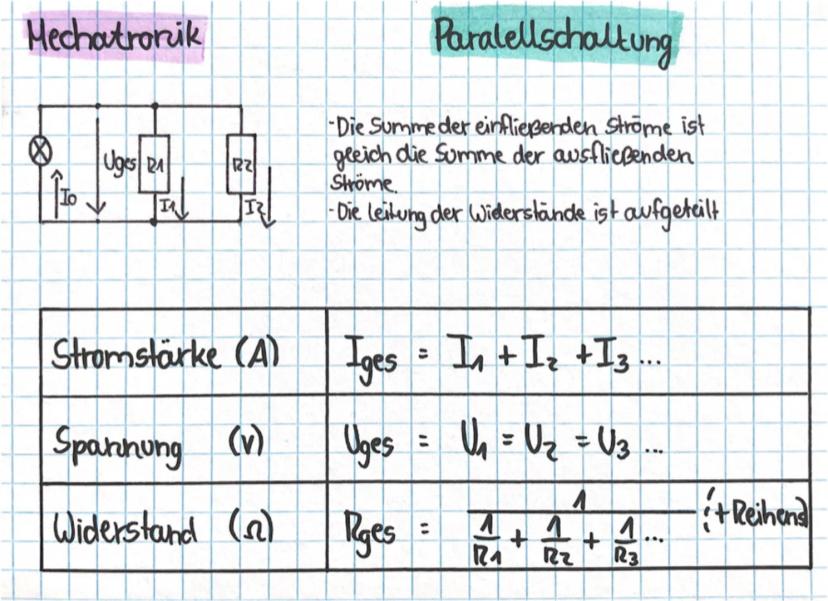 Mechatronik
Paralellschaltung
-Die Summe der einfließenden Ströme ist
gleich die Summe der ausfließenden
Ströme.
-Die Leitung der Widerstände ist aufgeteilt
I0
Uges
R1
I1
R2
I2
Stromstärke (A)
Iges = I1 + I2 + I3 ...
Spannung (V)
Uges = U1 = U2 = U3 ...
Widerstand (Ω)
Rges = 1 / (1/R1 + 1/R2 + 1/R3 ...) (+Reihend)